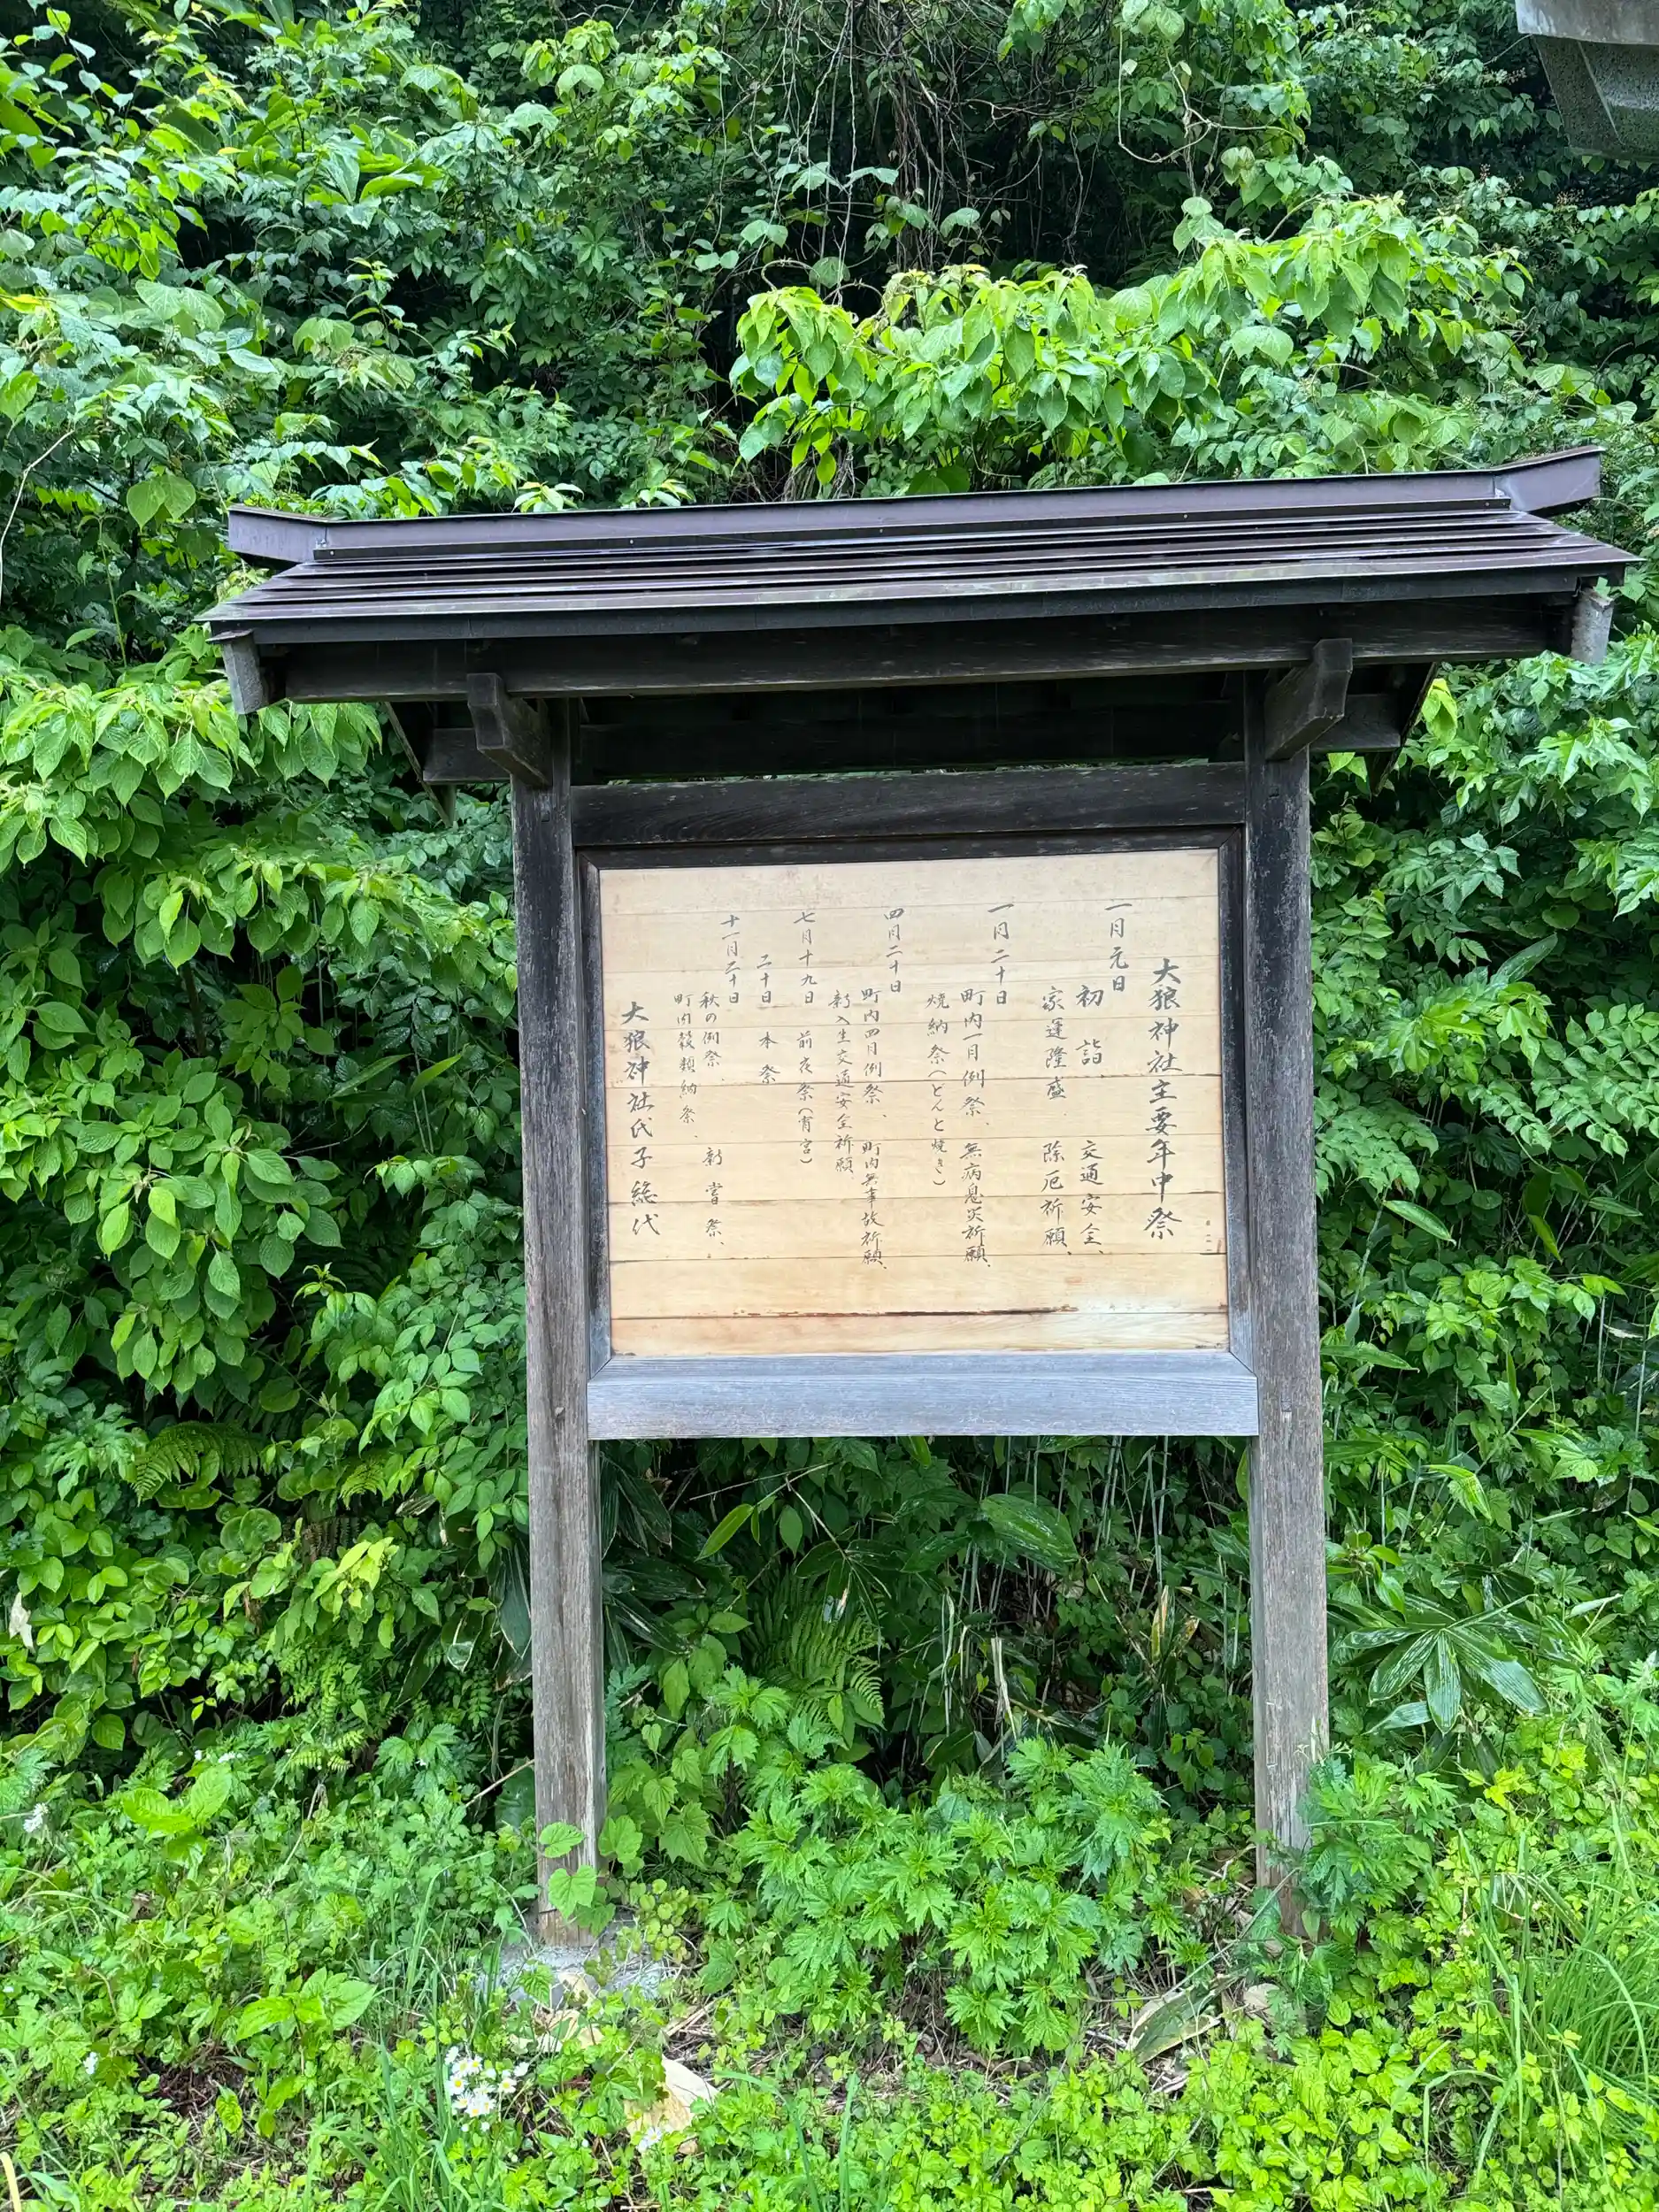 大狼神社主要年中祭
一月元日
初詣 交通安全、
家運隆盛 除厄祈願、
一月二十日
町内一月例祭、 無病息災祈願、
焼納祭（どんと焼き）
四月二十日
町内四月例祭、 町内無事故祈願、
新入生交通安全祈願、
七月十九日 前夜祭（宵宮）
二十日 本祭
十一月二十日
秋の例祭、 新嘗祭、
町内穀類納祭、
大狼神社氏子総代